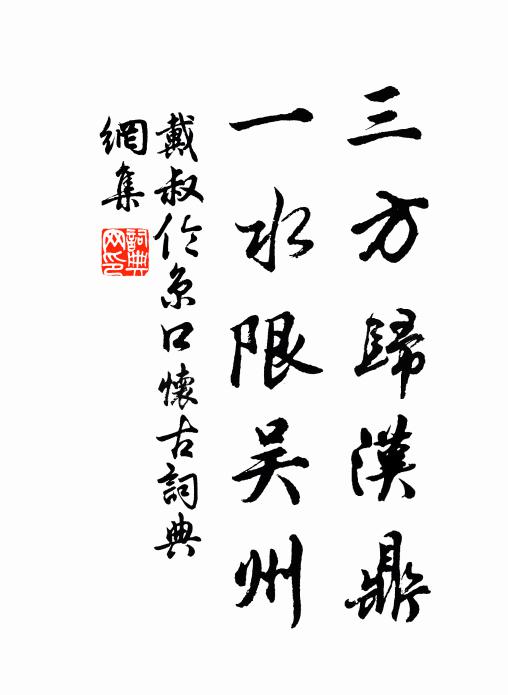 三方歸漢鼎
一水限吴州
戴叔伦京口懷古詞典
網集
詞典
网印